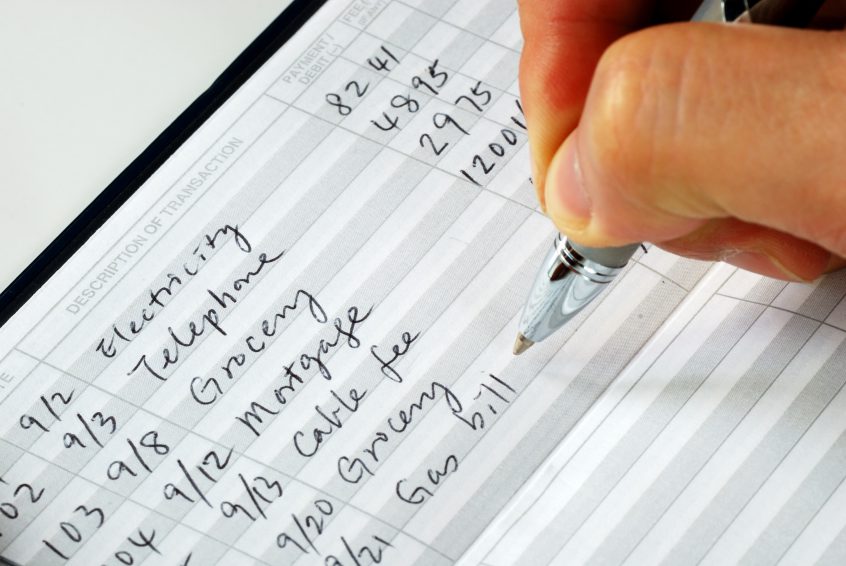 DESCRIPTION OF TRANSACTION PAYMENT / DEBIT (-) FEE (IF ANY)
9/2 Electricity 82 41
02 9/3 Telephone 48 95
103 9/8 Grocery 29 75
04 9/12 Mortgage 1200
9/13 Cable fee
9/20 Grocery
9/21 Gas bill